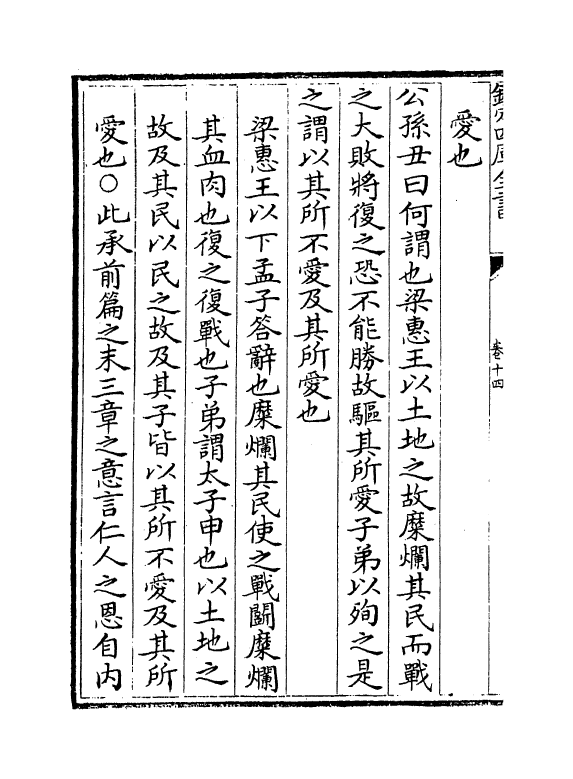 欽定四庫全書
卷十四
愛也
公孫丑曰何謂也梁惠王以土地之故糜爛其民而戰
之大敗將復之恐不能勝故驅其所愛子弟以殉之是
之謂以其所不愛及其所愛也
梁惠王以下孟子答辭也糜爛其民使之戰鬬糜爛
其血肉也復之復戰也子弟謂太子申也以土地之
故及其民以民之故及其子皆以其所不愛及其所
愛也○此承前篇之末三章之意言仁人之恩自内